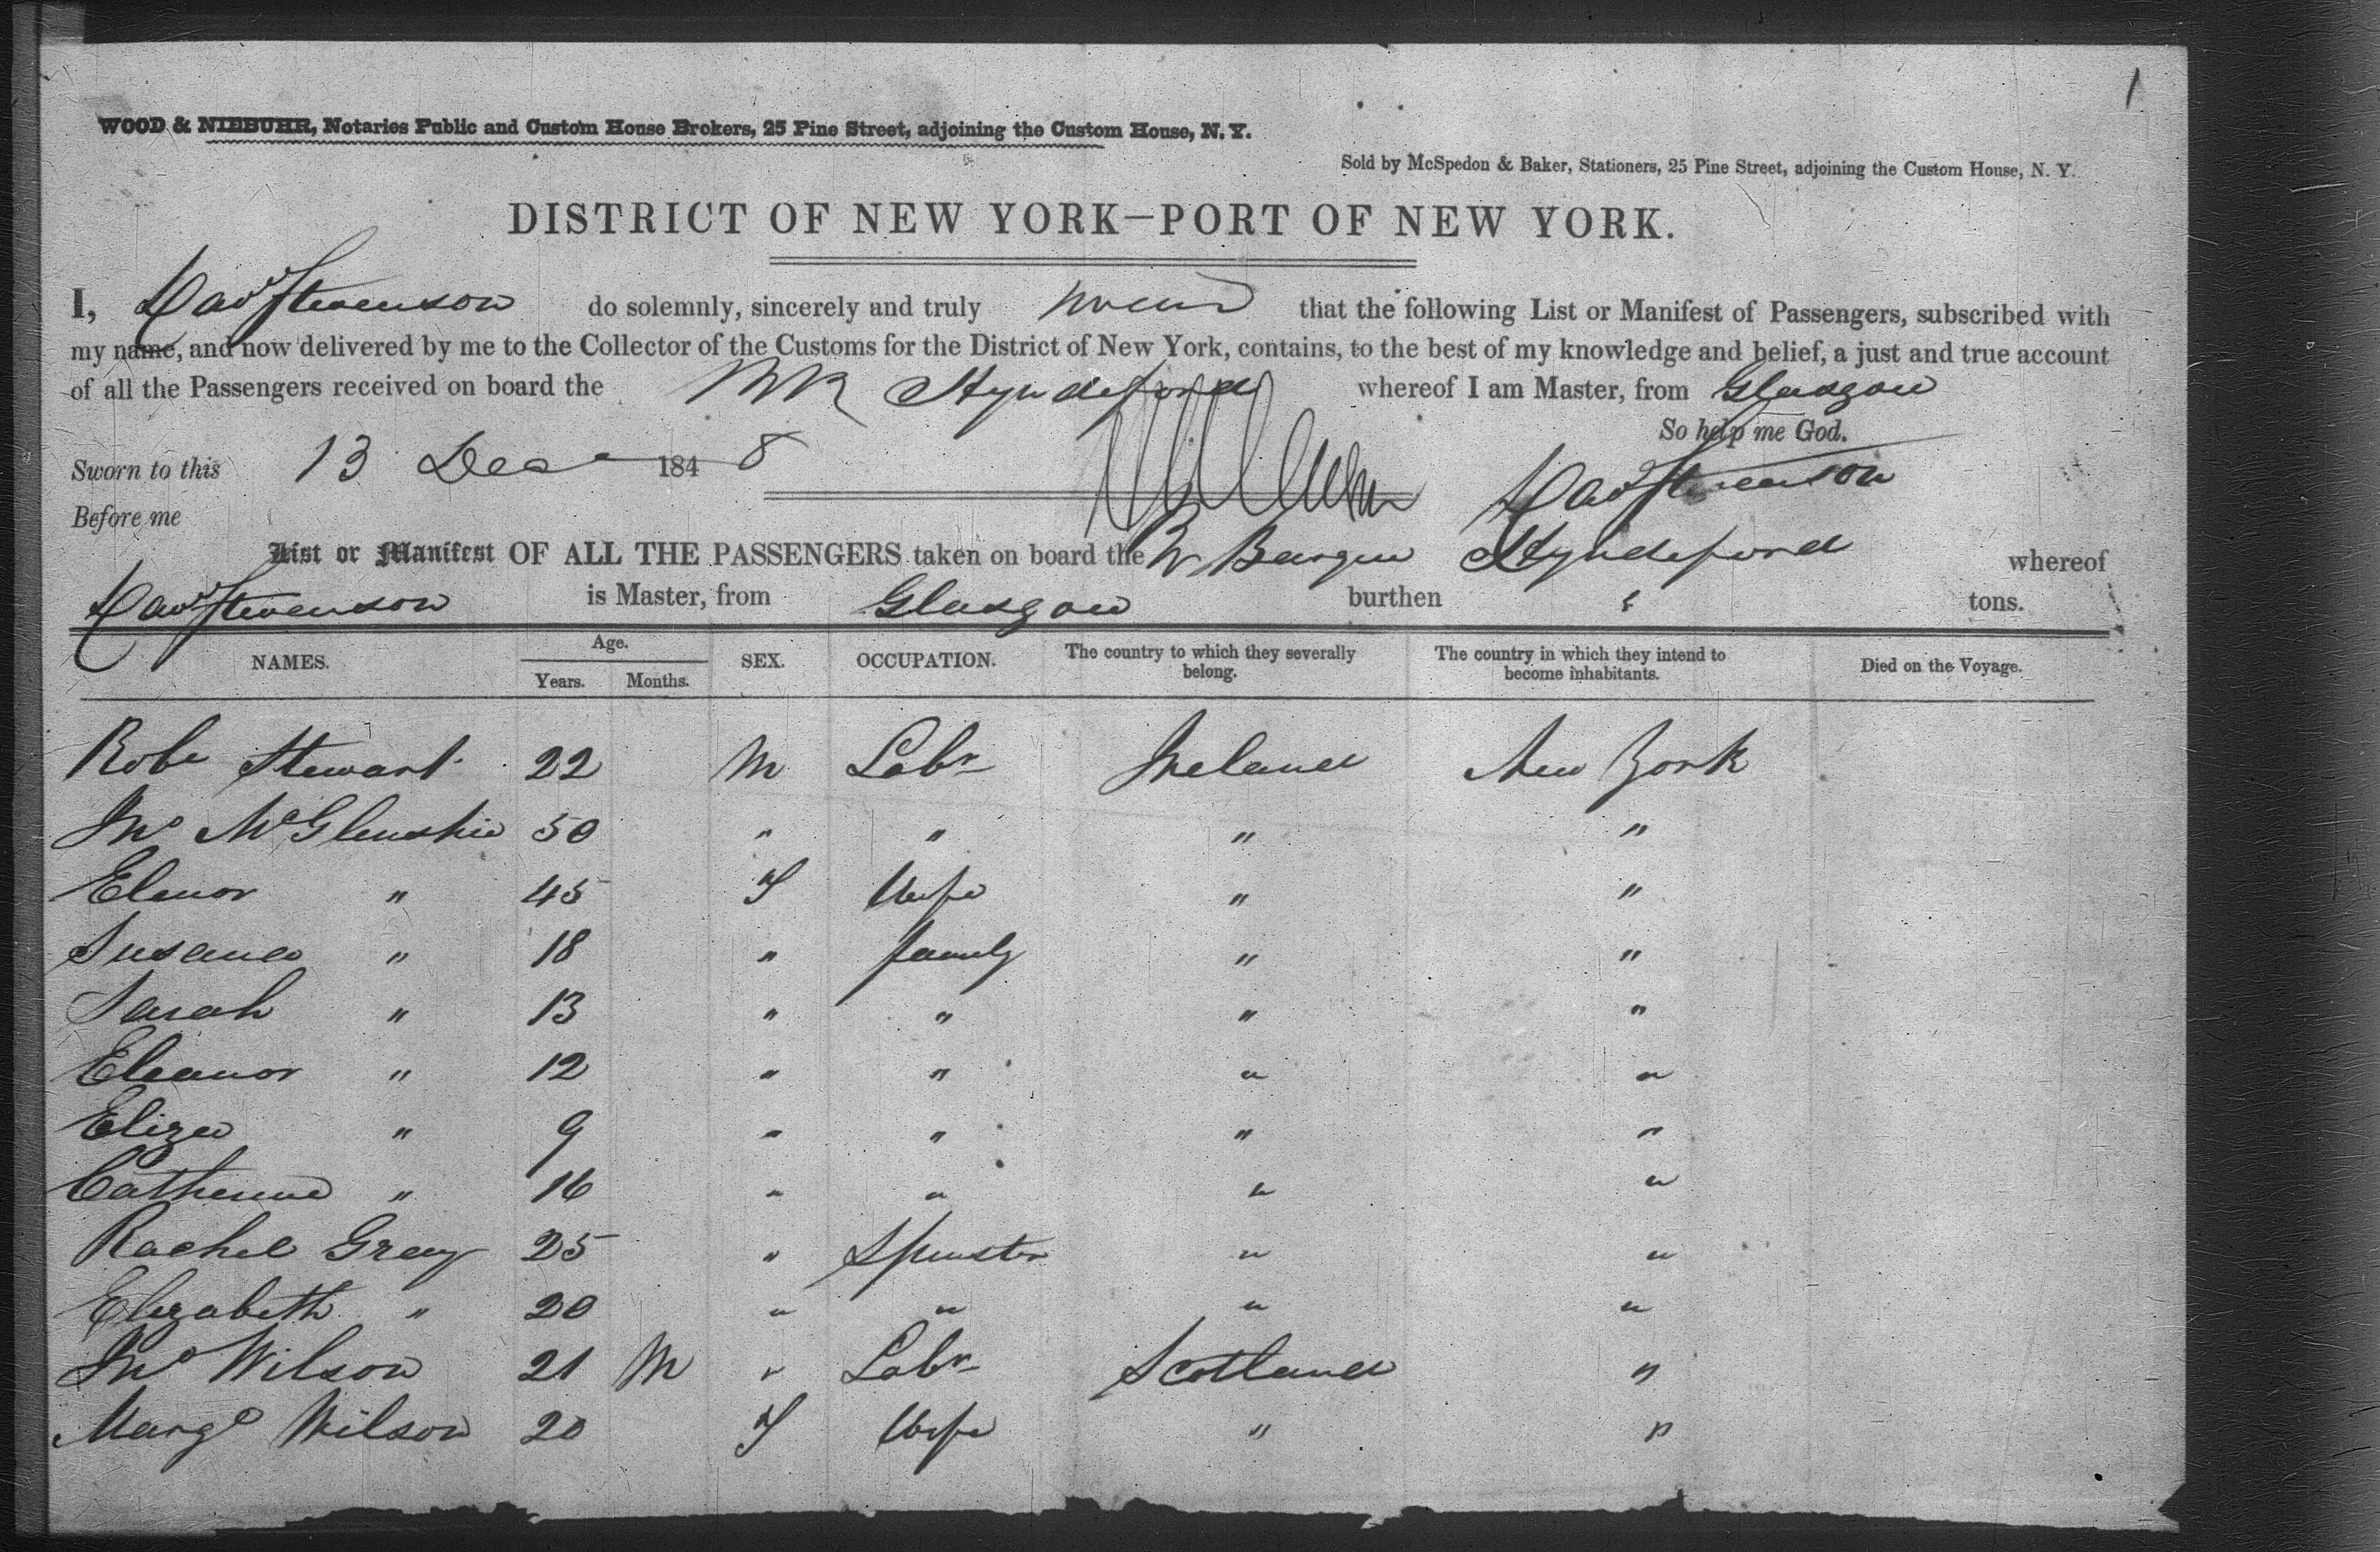 1
WOOD & NIEBUHR, Notaries Public and Custom House Brokers, 25 Pine Street, adjoining the Custom House, N. Y.
Sold by McSpedon & Baker, Stationers, 25 Pine Street, adjoining the Custom House, N. Y.
DISTRICT OF NEW YORK—PORT OF NEW YORK.
I, Davd Stevenson do solemnly, sincerely and truly swear that the following List or Manifest of Passengers, subscribed with
my name, and now delivered by me to the Collector of the Customs for the District of New York, contains, to the best of my knowledge and belief, a just and true account
of all the Passengers received on board the Hyndeford whereof I am Master, from Glasgow
So help me God.
Sworn to this 13 Dec 1848 Davd Stevenson
Before me
List or Manifest OF ALL THE PASSENGERS taken on board the Br Barque Hyndeford whereof
Davd Stevenson is Master, from Glasgow burthen tons.
NAMES. Age. Years. Months. SEX. OCCUPATION. The country to which they severally belong. The country in which they intend to become inhabitants. Died on the Voyage.
Robt Stewart 22 M Labr Ireland New York
Jno McGlenshie 50 " " " "
Elenor " 45 F Wife " "
Susana " 18 " family " "
Sarah " 13 " " " "
Eleanor " 12 " " " "
Eliza " 9 " " " "
Catherine " 16 " " " "
Rachel Grey 25 " Spinster " "
Elizabeth " 20 " " " "
Jno Wilson 21 M " Labr Scotland "
Margt Wilson 20 F Wife " "